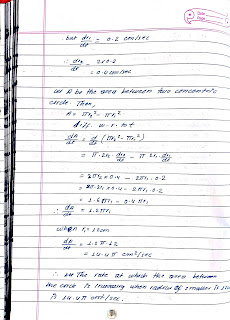 Date
Page
but dr₁/dt = 0.2 cm/sec
∴ dr₂/dt = 2x0.2
= 0.4 cm/sec
let A be the area between two concentric
circle. Then,
A = πr₂² - πr₁²
diff. w.r. to t
dA/dt = d/dt (πr₂² - πr₁²)
= π.2r₂.dr₂/dt - π 2r₁.dr₁/dt
= 2πr₂ x 0.4 - 2πr₁.0.2
= 2π.2r₁ x 0.4 - 2πr₁.0.2
= 1.6πr₁ - 0.4πr₁
∴ dA/dt = 1.2πr₁
when r₁ = 12cm
dA/dt = 1.2π.12
= 14.4π cm²/sec
∴ The rate at which the area between
the circle is increasing when radius of smaller is
is 14.4π cm²/sec.